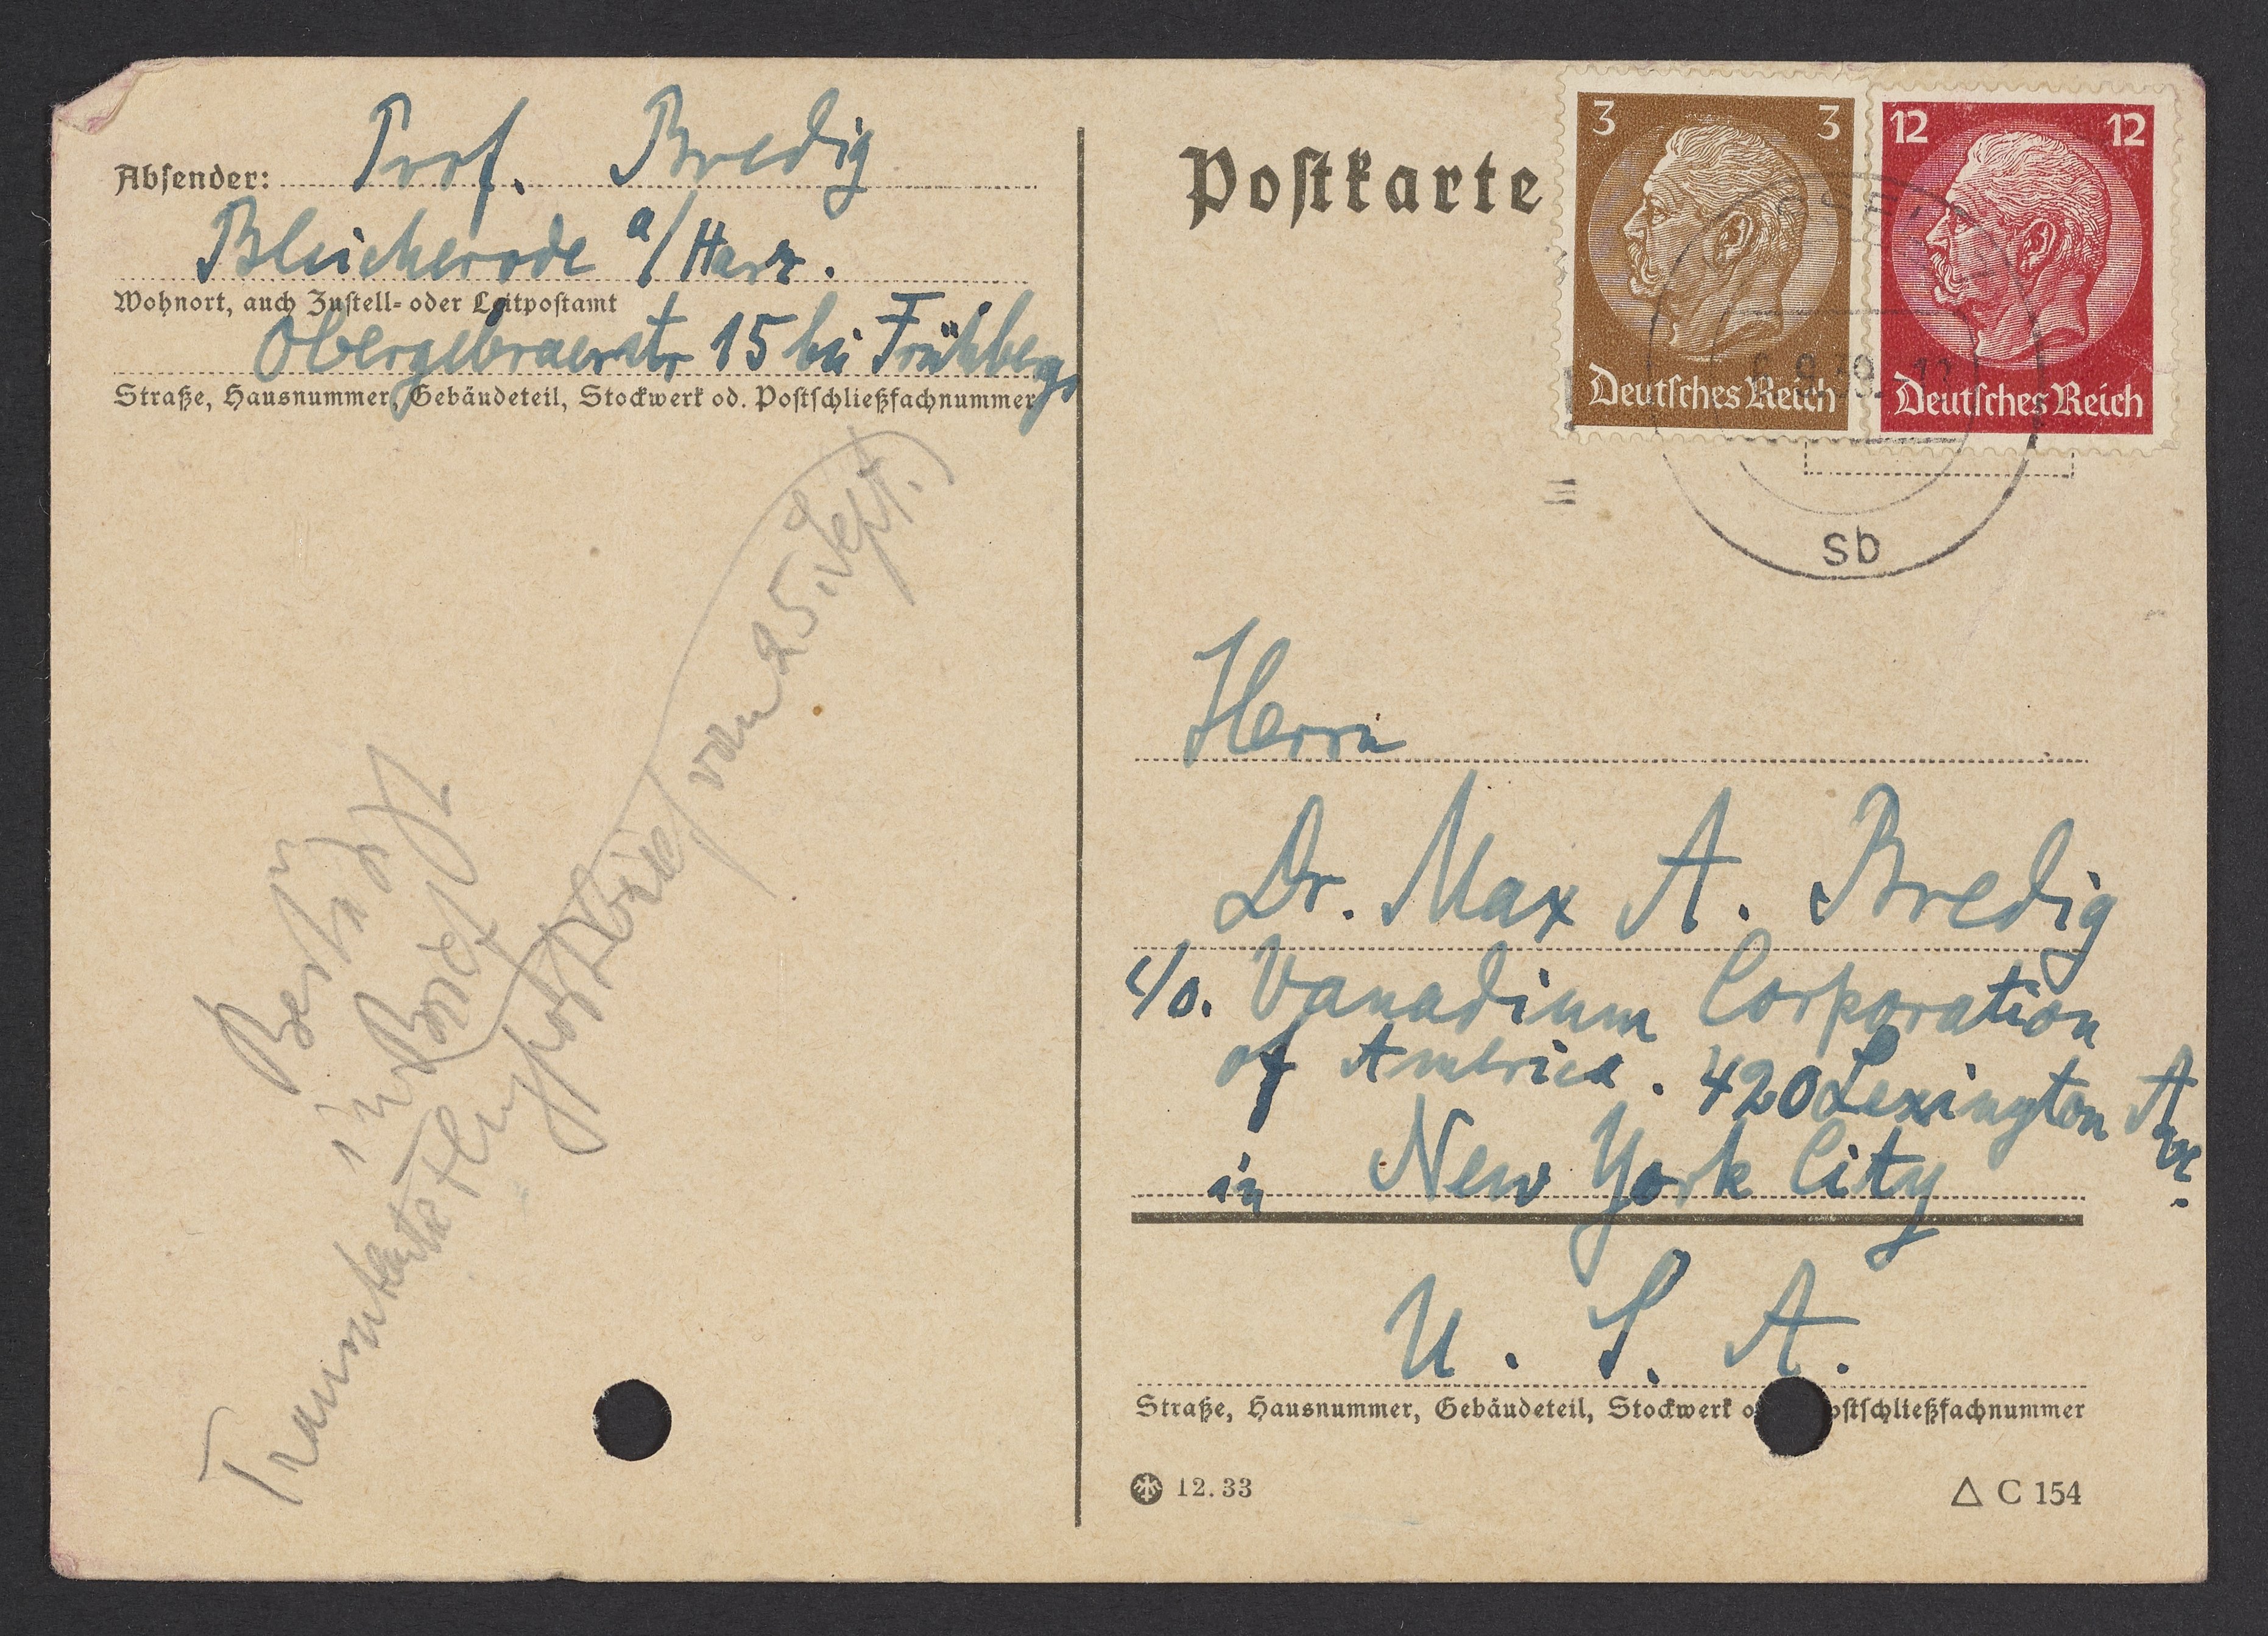 Absender: Prof. Bredig
Bleicherode a/Harz.
Wohnort, auch Zustell- oder Leitpostamt
Obergebraerstr 15 bei Frühbergs
Straße, Hausnummer, Gebäudeteil, Stockwerk od. Postschließfachnummer
Bestätigt
in Brief
Flugpostbrief vom 25. Sept.)
Postkarte
3 3
Deutsches Reich
12 12
Deutsches Reich
sb
Herrn
Dr. Max A. Bredig
c/o. Vanadium Corporation
of America. 420 Lexington Ave.
in New York City
U. S. A.
Straße, Hausnummer, Gebäudeteil, Stockwerk
12.33
△ C 154